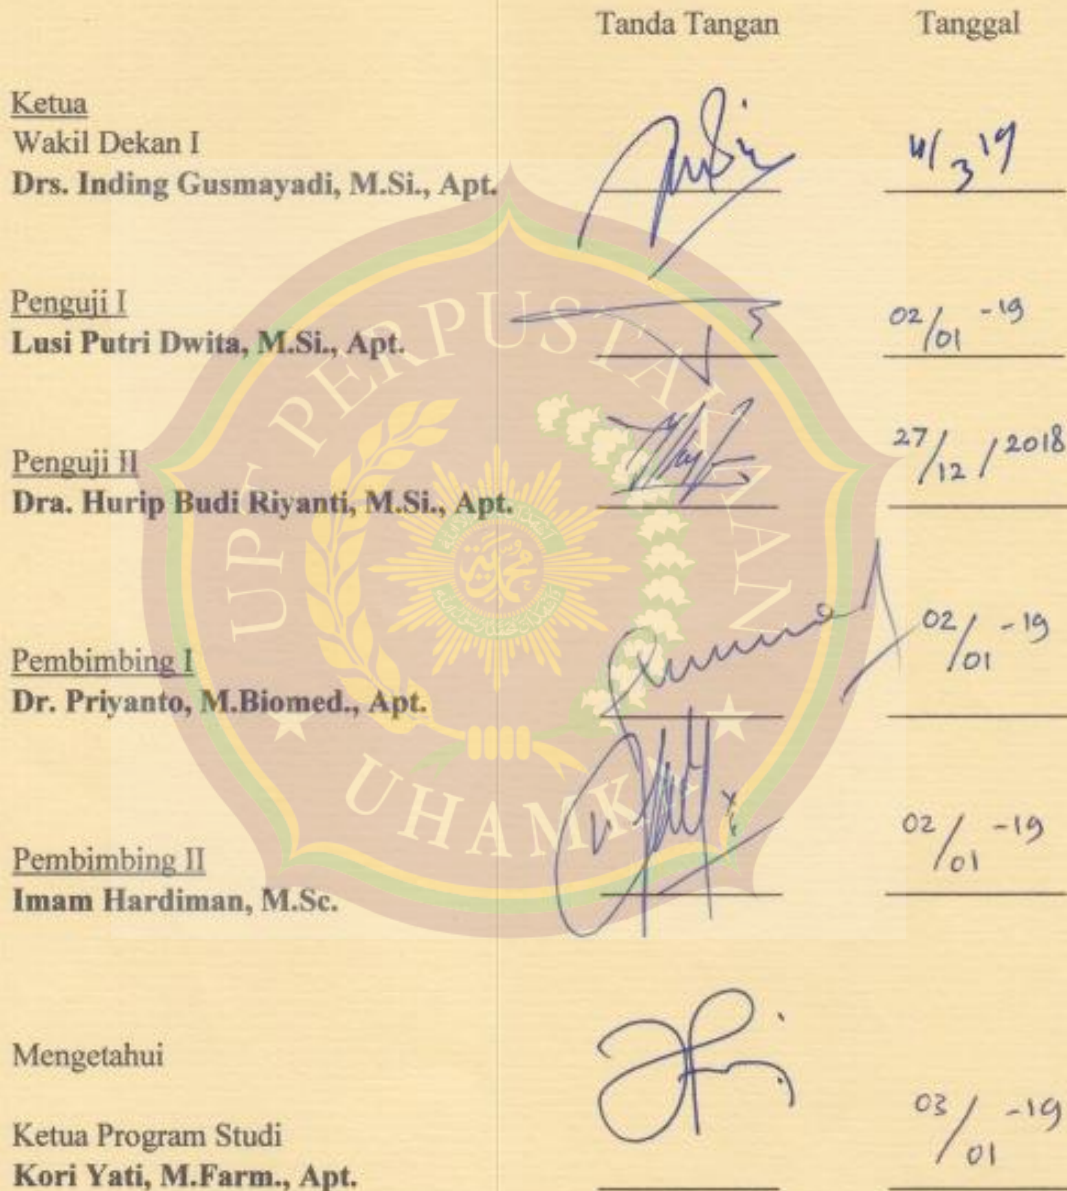 Tanda Tangan Tanggal
Ketua
Wakil Dekan I
Drs. Inding Gusmayadi, M.Si., Apt.
Penguji I
Lusi Putri Dwita, M.Si., Apt.
02/01 -19
Penguji II
Dra. Hurip Budi Riyanti, M.Si., Apt.
27/12/2018
Pembimbing I
Dr. Priyanto, M.Biomed., Apt.
02/01 -19
Pembimbing II
Imam Hardiman, M.Sc.
02/01 -19
Mengetahui
Ketua Program Studi
Kori Yati, M.Farm., Apt.
03/01 -19
UPT PERPUSTAKAAN
UHAMKA